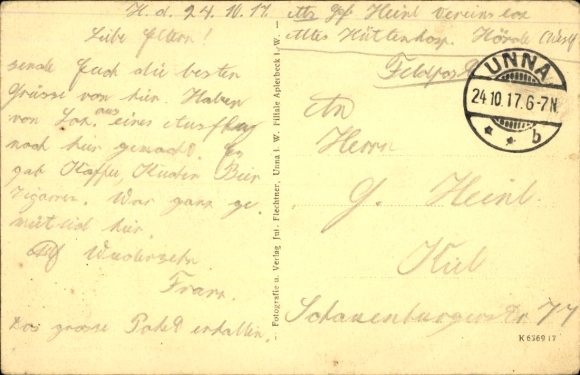 H. d. 24.10.17.
Liebe Eltern!
sende Euch die besten
Grüsse von hier. Haben
von Laz. aus einen Ausflug
nach hier gemacht. Es
gab Kaffee, Kuchen Bier
Zigarren. War ganz ge-
mütlich hier.
Auf Wiedersehn
Franz.
Das grosse Paket erhalten.
Fotografie u. Verlag Jul. Flechtner, Unna i. W. Filiale Aplerbeck i. W.
Abs Gef Heinl Vereinslaz
Altes Hüttenhosp. Hörde (Westf
Feldpost
UNNA
24.10.17.6-7N
* * b
An
Herrn
G. Heinl.
Kiel
Schauenburgerstr. 77
K 6269 17